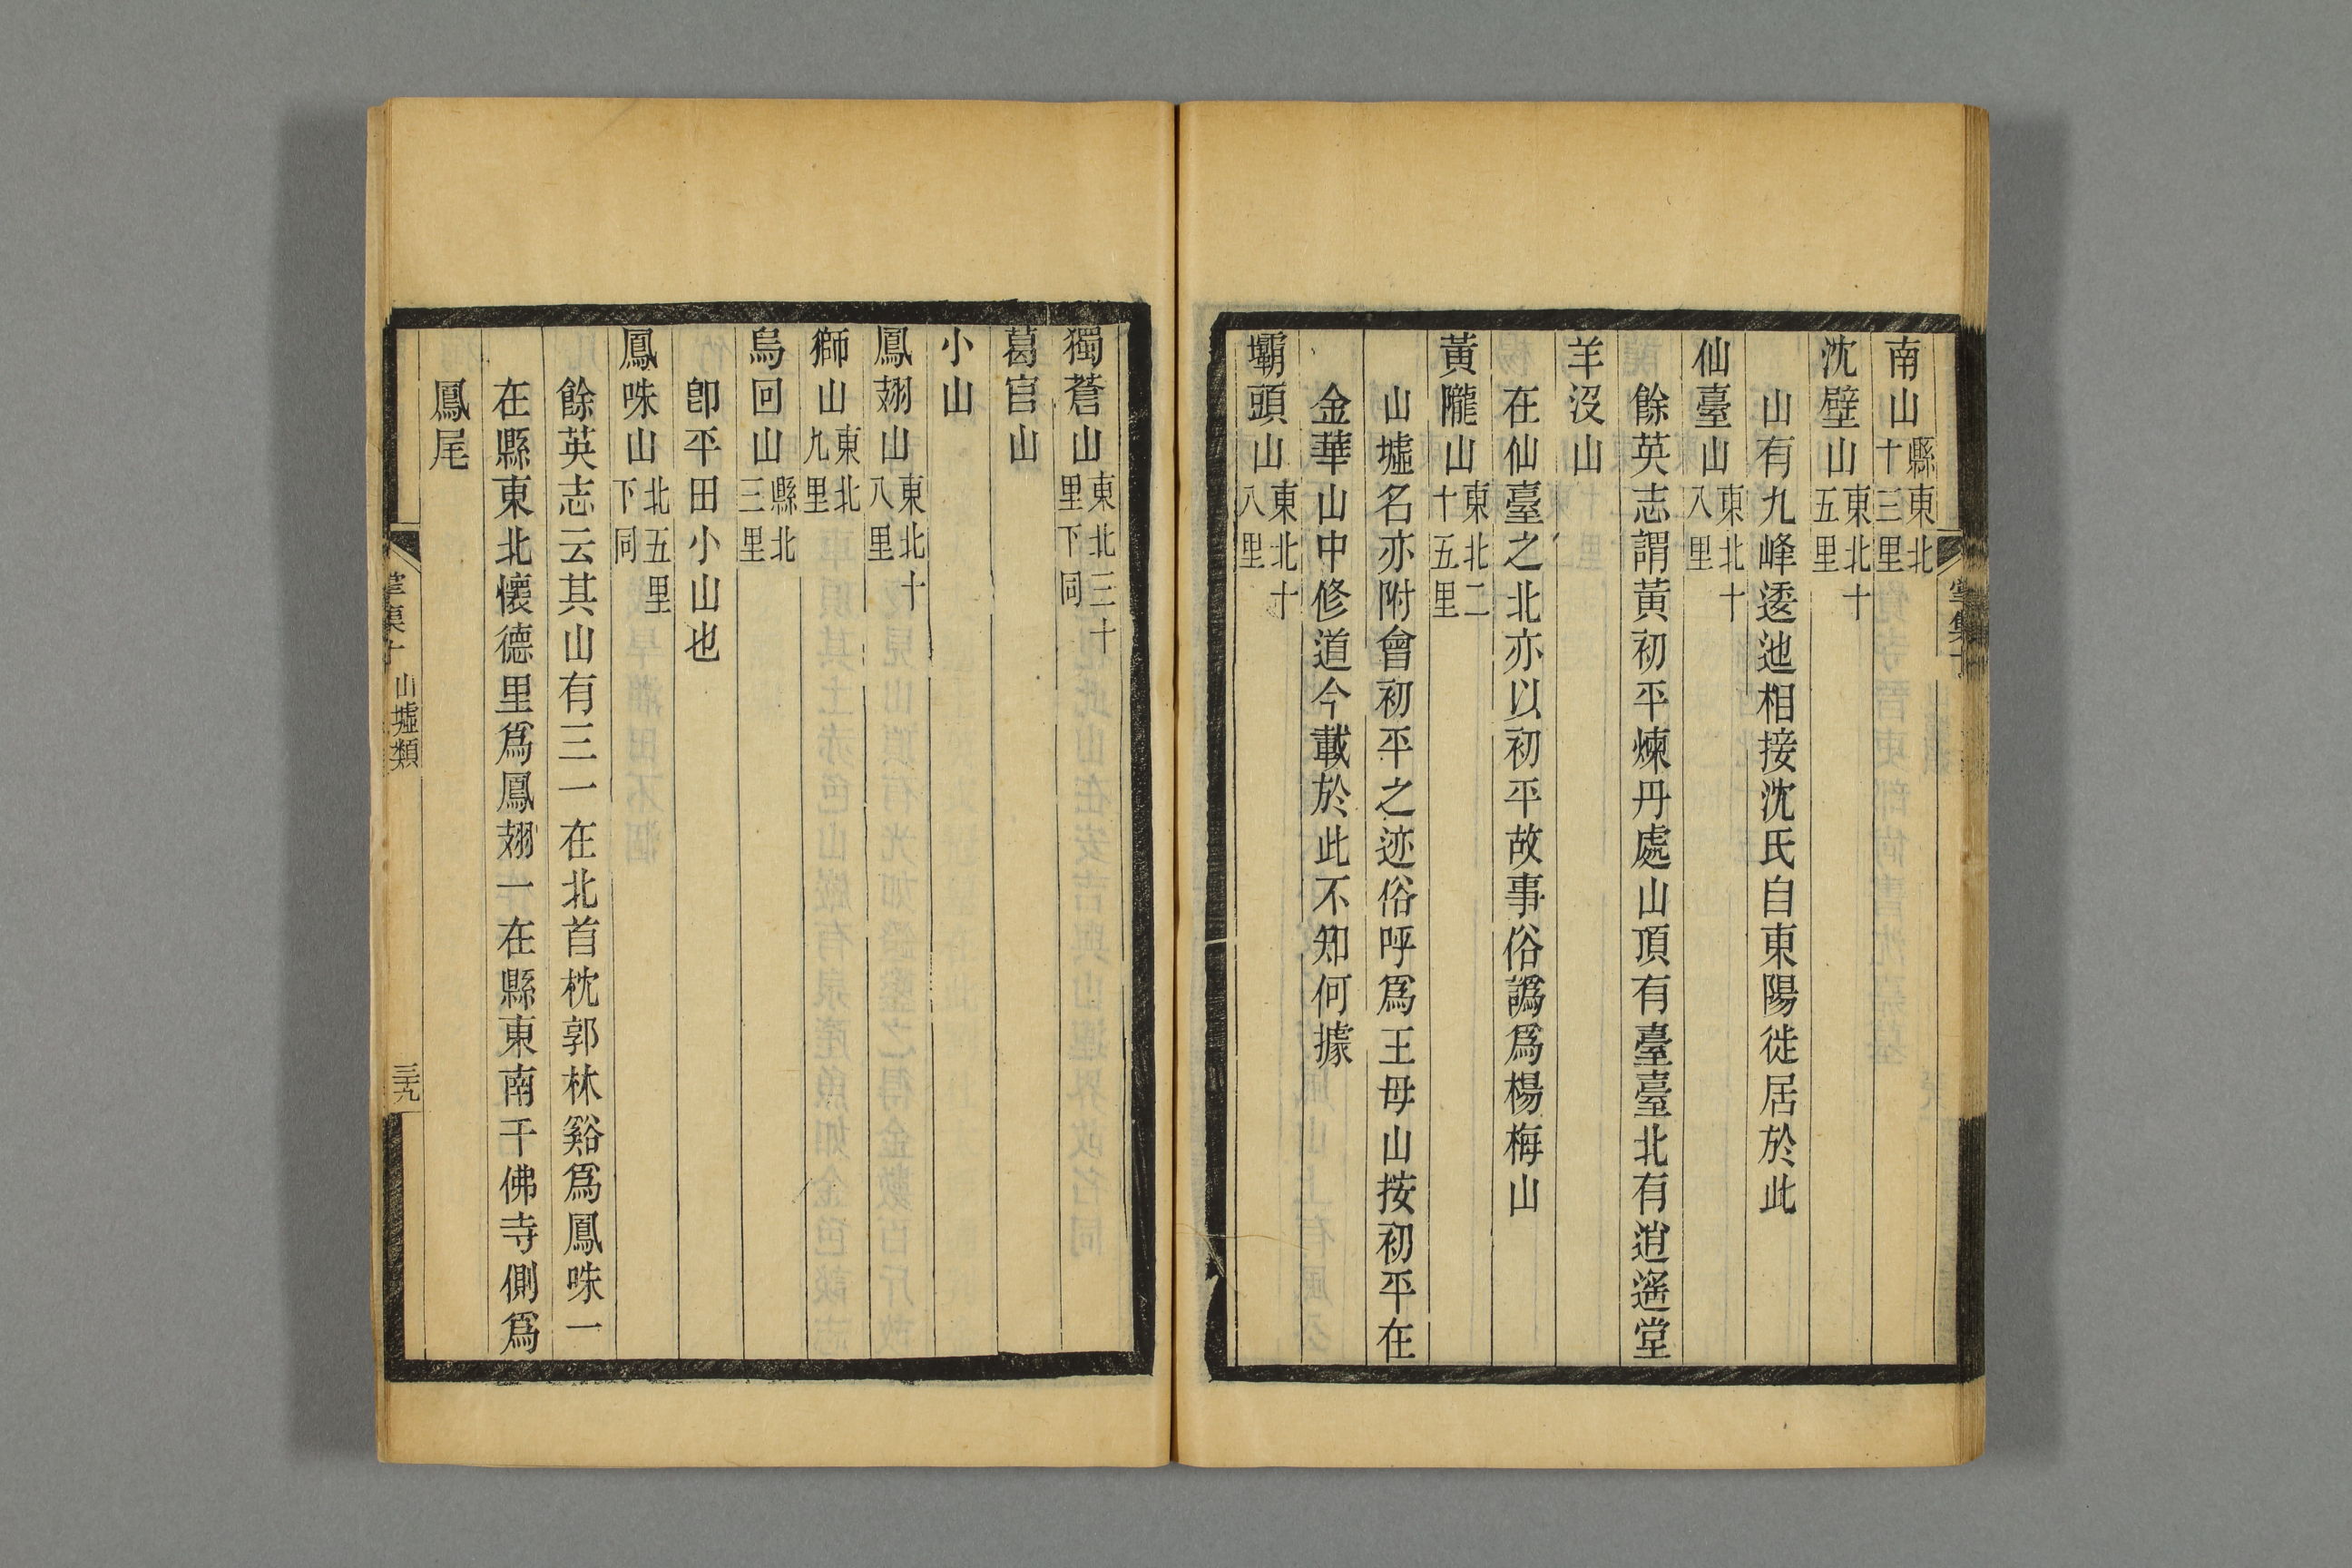 南山縣東北十三里
沈壁山東北十五里
山有九峰逶迆相接沈氏自東陽徙居於此
仙臺山東北十八里
餘英志謂黃初平煉丹處山頂有臺臺北有逍遙堂
羊沒山
在仙臺之北亦以初平故事俗譌爲楊梅山
黃隴山東北二十五里
山墟名亦附會初平之迹俗呼爲王母山按初平在
金華山中修道今載於此不知何據
壩頭山東北十八里
獨蒼山東北三十里下同
葛官山
小山
鳳翅山東北十八里
獅山東北九里
烏回山縣北三里
卽平田小山也
鳳咮山北五里下同
餘英志云其山有三一在北首枕郭林谿爲鳳咮一
在縣東北懷德里爲鳳翅一在縣東南千佛寺側爲
鳳尾
山墟類
三十九